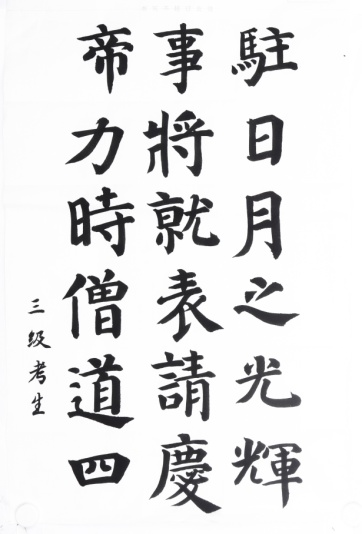 駐日月之光輝
事將就表請慶
帝力時僧道四
三级考生